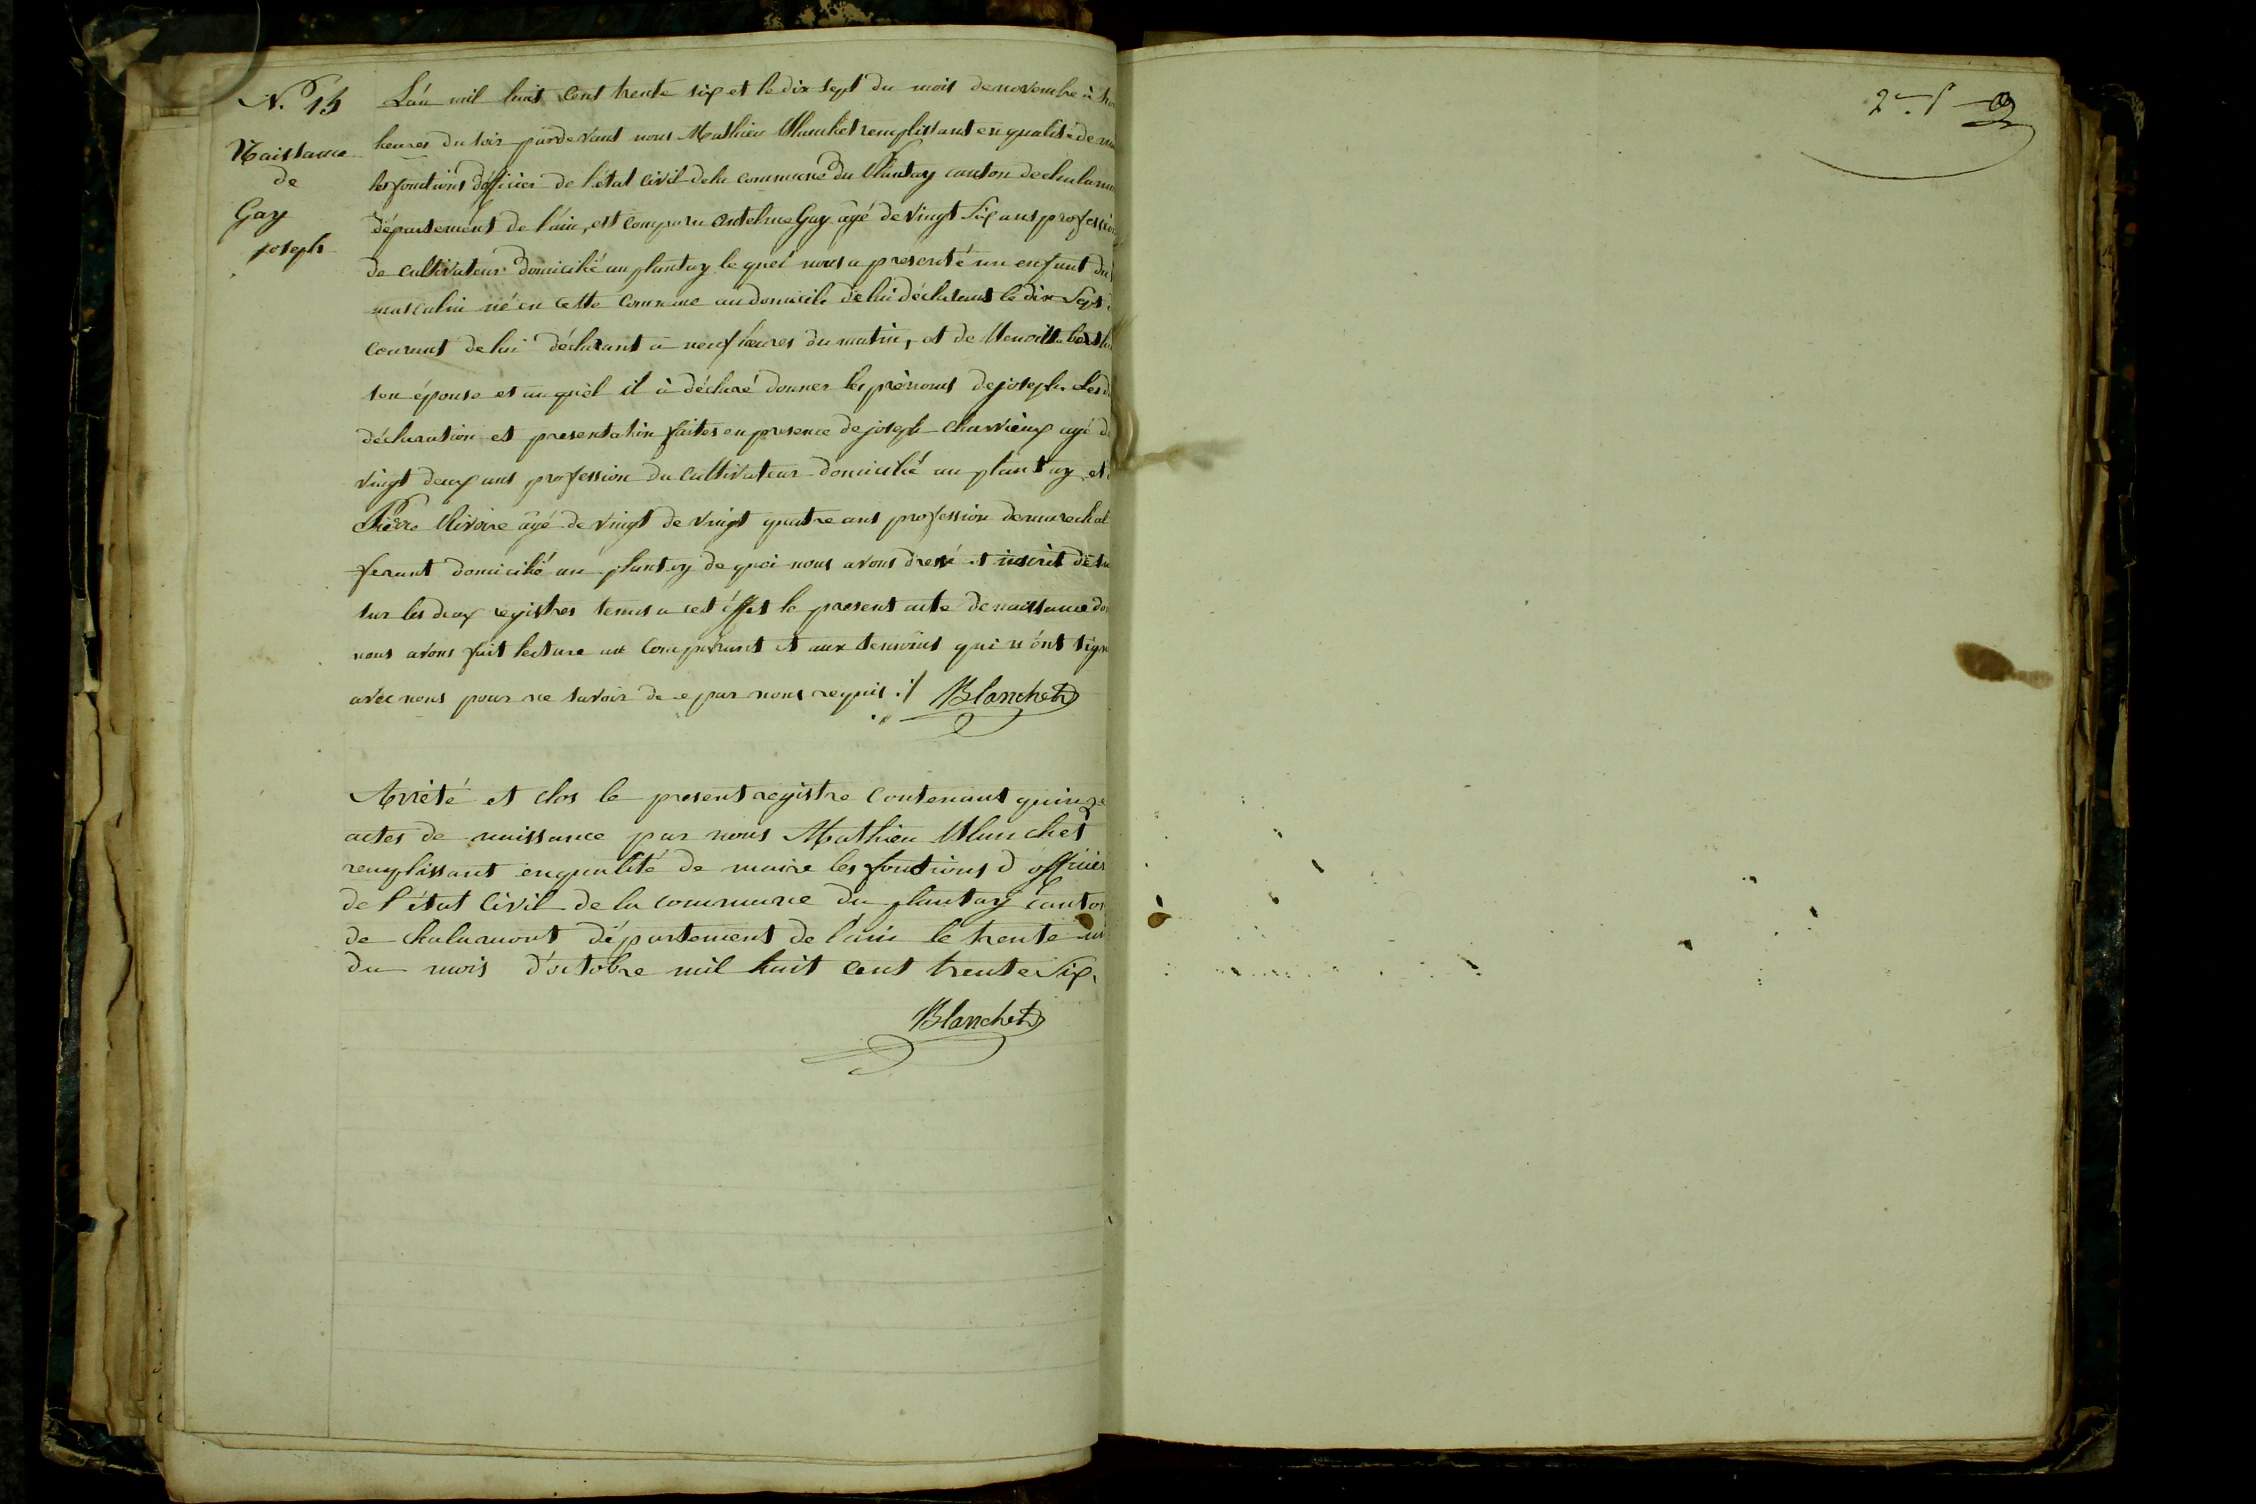 N.° 15
Naissance
de
Gay
joseph
L'án mil huit cent trente six et le dix sept du mois de novembre à
heures du soir pardevant nous Mathieu Blanchet remplissant en qualité de
les fonctions d'officier de l'état civil de la commune du Plantay canton de chalamon
département de l'ain, est comparu antelme Gay âgé de vingt six ans profession
de cultivateur domicilié au plantay le quel nous a presenté un enfant du
masculin né en cette commune au domicile de lui déclarant le dix sept
courant de lui déclarant à neuf heures du matin, et de Benoitte
son épouse et au quel il à déclaré donner les prénoms de joseph. Les
déclaration et presentation faites en presence de joseph Charvieux agé de
vingt deux ans profession du cultivateur domicilié au plantay et
Pierre Rivoire âgé de vingt de vingt quatre ans profession de marechal
ferant domicilié au plantay de quoi nous avons dressé et inscrit de
sur les deux registres tenus a cet éffet le present acte de naissance
nous avons fait lecture au comparant et aux temoins qui n'ónt signé
avec nous pour ne savoir de ce par nous requis ./. Blanchet
Arrêté et clos le present registre contenant quinze
actes de naissance par nous Mathieu Blanchet
remplissant en qualité de maire les fonctions d'officier
de l'état Civil de la commune du plantay canton
de chalamont département de l'ain le trente un
du mois d'octobre mil huit cent trente Six,
Blanchet